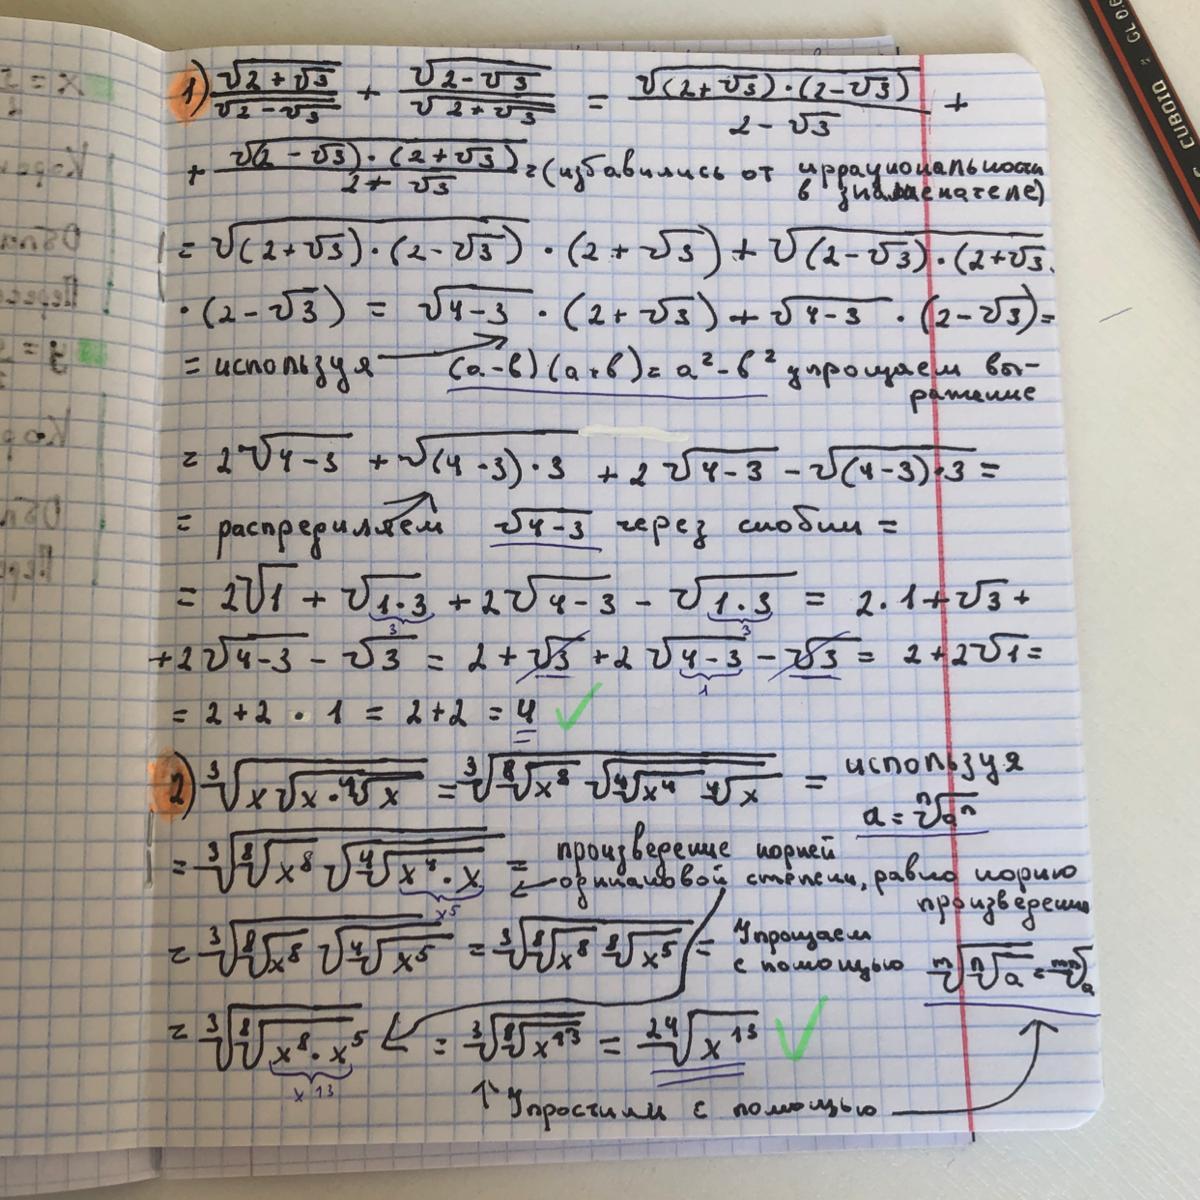 1) √(2+√3)/√(2-√3) + √(2-√3)/√(2+√3) = √((2+√3)·(2-√3))/(2-√3) +
+ √((2-√3)·(2+√3))/(2+√3) = (избавились от иррациональности
в знаменателе)
= √((2+√3)·(2-√3)) · (2+√3) + √((2-√3)·(2+√3)) ·
·(2-√3) = √(4-3) · (2+√3) + √(4-3) · (2-√3) =
= используя (a-b)(a+b) = a²-b² упрощаем вы-
ражение
= 2√(4-3) + √((4-3)·3) + 2√(4-3) - √((4-3)·3) =
= распредиляем √(4-3) через скобки =
= 2√1 + √(1·3) + 2√(4-3) - √(1·3) = 2·1+√3+
3 3
+2√(4-3) - √3 = 2+√3+2√(4-3)-√3 = 2+2√1=
1
= 2+2·1 = 2+2 = 4 ✓
2) ³√(x√(x·⁴√x)) = ³√(⁸√x⁸ √(⁴√x⁴ ⁴√x)) = используя
a = ⁿ√aⁿ
= ³√(⁸√x⁸ √(⁴√(x⁴·x))) = произведение корней
x⁵
одинаковой степени, равно корню
произведения
= ³√(⁸√x⁸ √(⁴√x⁵)) = ³√(⁸√x⁸ ⁸√x⁵) = Упрощаем
с помощью ᵐ√(ⁿ√a) = ᵐⁿ√a
= ³√(⁸√(x⁸·x⁵)) = ³√(⁸√x¹³) = ²⁴√x¹³ ✓
x¹³
↑ Упростили с помощью
CUBOID
GL 0.6